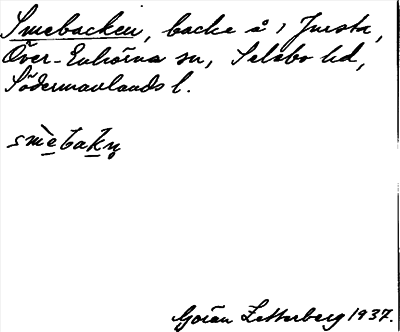 Smebacken, backe å 1 Jursta,
Över-Enhörna sn, Selebo hd,
Södermanlands l.
smèbakn̥
Göran Zetterberg 1937.